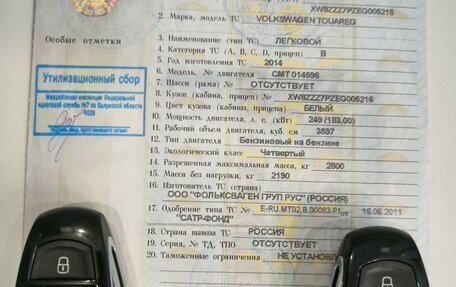 XW8ZZZ7PZEG005216
2. Марка, модель ТС VOLKSWAGEN TOUAREG
Особые отметки
3. Наименование (тип ТС) ЛЕГКОВОЙ
4. Категория ТС (А, В, С, D, прицеп) В
5. Год изготовления ТС 2014
6. Модель, № двигателя СМТ 014596
7. Шасси (рама) № ОТСУТСТВУЕТ
8. Кузов (кабина, прицеп) № XW8ZZZ7PZEG005216
9. Цвет кузова (кабины, прицепа) БЕЛЫЙ
10. Мощность двигателя, л. с. (кВт) 249 (183.00)
11. Рабочий объем двигателя, куб. см 3597
12. Тип двигателя Бензиновый на бензине
13. Экологический класс Четвертый
14. Разрешенная максимальная масса, кг 2800
15. Масса без нагрузки, кг 2190
16. Изготовитель ТС (страна)
ООО "ФОЛЬКСВАГЕН ГРУП РУС" (РОССИЯ)
17. Одобрение типа ТС № E-RU.MT02.B.00083.P1 от 16.06.2011
"САТР-ФОНД"
18. Страна вывоза ТС РОССИЯ
19. Серия, № ТД, ТПО ОТСУТСТВУЕТ
20. Таможенные ограничения НЕ УСТАНОВЛ
Утилизационный сбор
Межрайонная инспекция Федеральной
налоговой службы №7 по Калужской области
4029